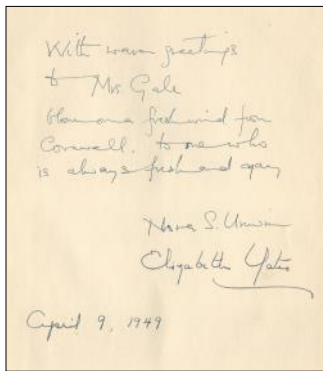 With warm greetings
to Mrs Gale
blown on a fresh wind from
Cornwall. to one who
is always fresh and gay
Nora S. Unwin
Elizabeth Yates
April 9, 1949